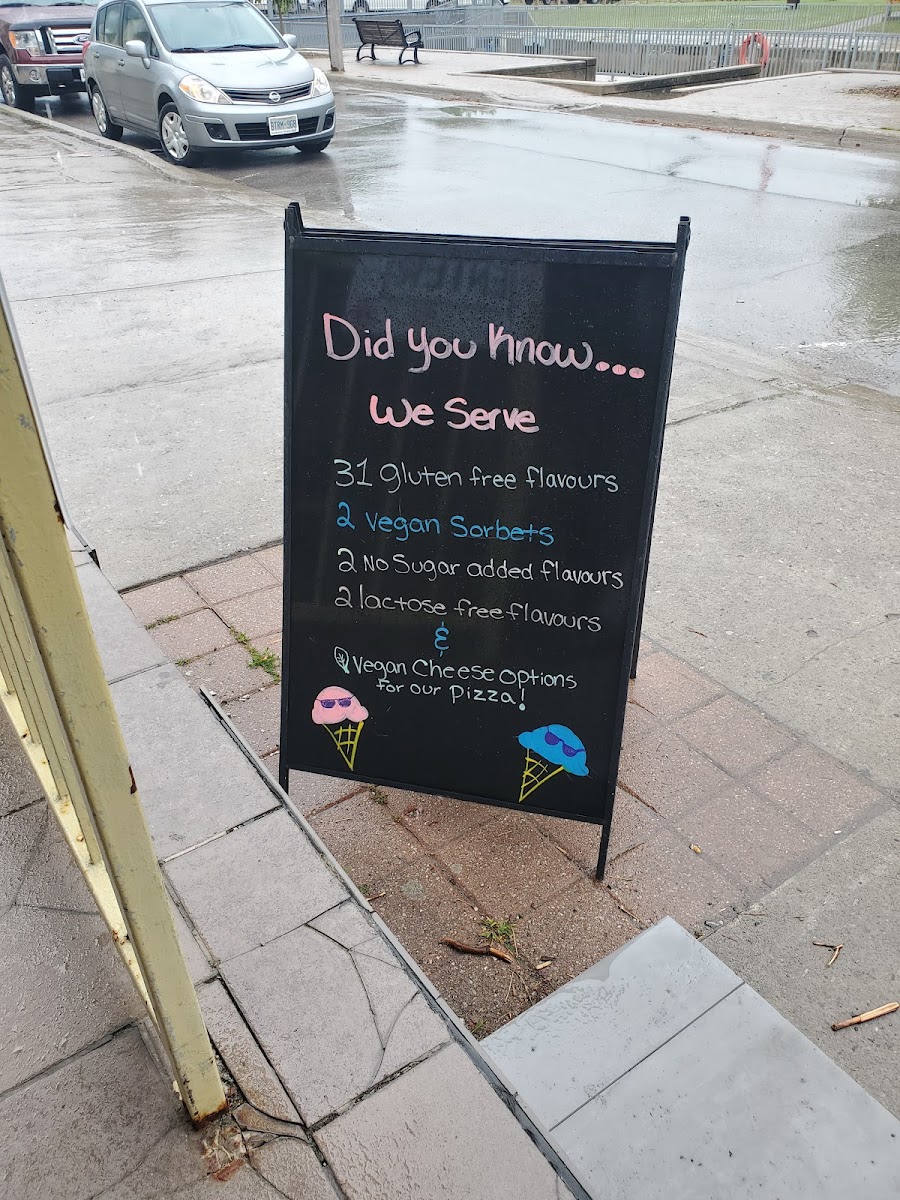 BTRM·908
Did you Know...
We Serve
31 gluten free flavours
2 vegan Sorbets
2 No Sugar added flavours
2 lactose free flavours
&
Vegan Cheese options
for our Pizza!